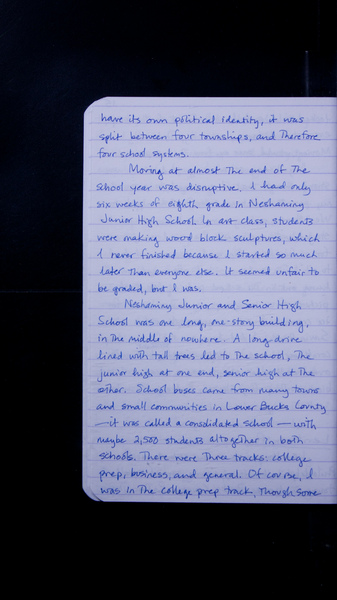 have its own political identity, it was
split between four townships, and Therefore
four school systems.
Moving at almost The end of The
school year was disruptive. I had only
six weeks of eighth grade in Neshaminy
Junior High School. In art class, students
were making wood block sculptures, which
I never finished because I started so much
later Than everyone else. It seemed unfair to
be graded, but I was.
Neshaminy Junior and Senior High
School was one long, one-story building,
in The middle of nowhere. A long drive
lined with tall trees led to The school, The
junior high at one end, senior high at The
other. School buses came from many towns
and small communities in Lower Bucks County
—it was called a consolidated school—with
maybe 2,500 students altogether in both
schools. There were Three tracks: college
prep, business, and general. Of course, I
was in The college prep track, Though some